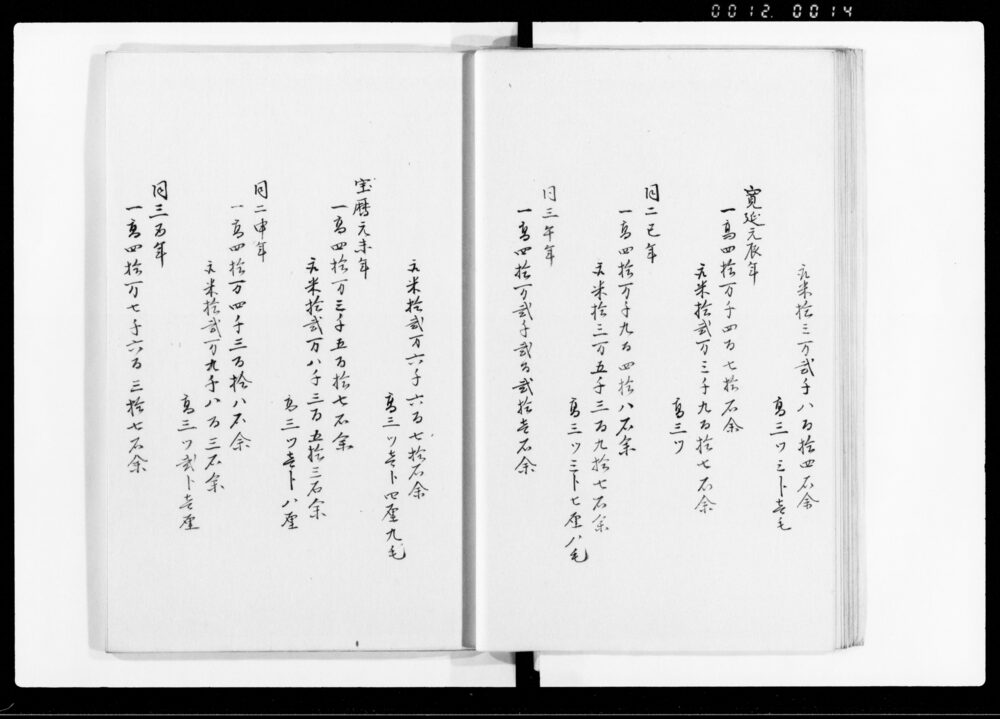 0012. 0014
元米拾三万弐千八百拾四石余
高三ツ三ト壱毛
寛延元辰年
一高四拾一万千四百七拾石余
元米拾弐万三千九百拾七石余
高三ツ
同二巳年
一高四拾一万千九百四拾八石余
元米拾三万五千三百九拾七石余
高三ツ三ト七厘八毛
同三午年
一高四拾一万弐千弐百弐拾壱石余
元米拾弐万六千六百七拾石余
高三ツ壱ト四厘九毛
宝暦元未年
一高四拾一万三千五百拾七石余
元米拾弐万八千三百五拾三石余
高三ツ壱ト八厘
同二申年
一高四拾一万四千三百拾八石余
元米拾弐万九千八百三石余
高三ツ弐ト壱厘
同三酉年
一高四拾一万七千六百三拾七石余